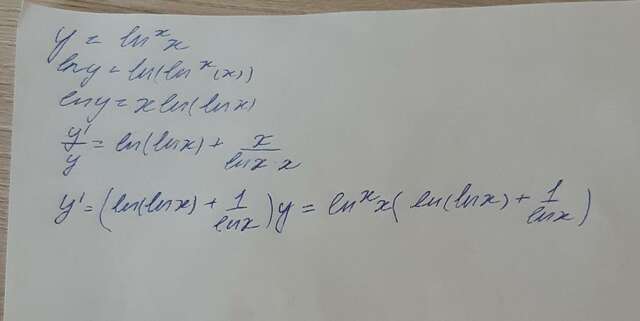 y = lnˣx
ln y = ln(lnˣ(x))
ln y = x ln(ln x)
y'/y = ln(ln x) + x/(ln x · x)
y' = (ln(ln x) + 1/ln x) y = lnˣx (ln(ln x) + 1/ln x)